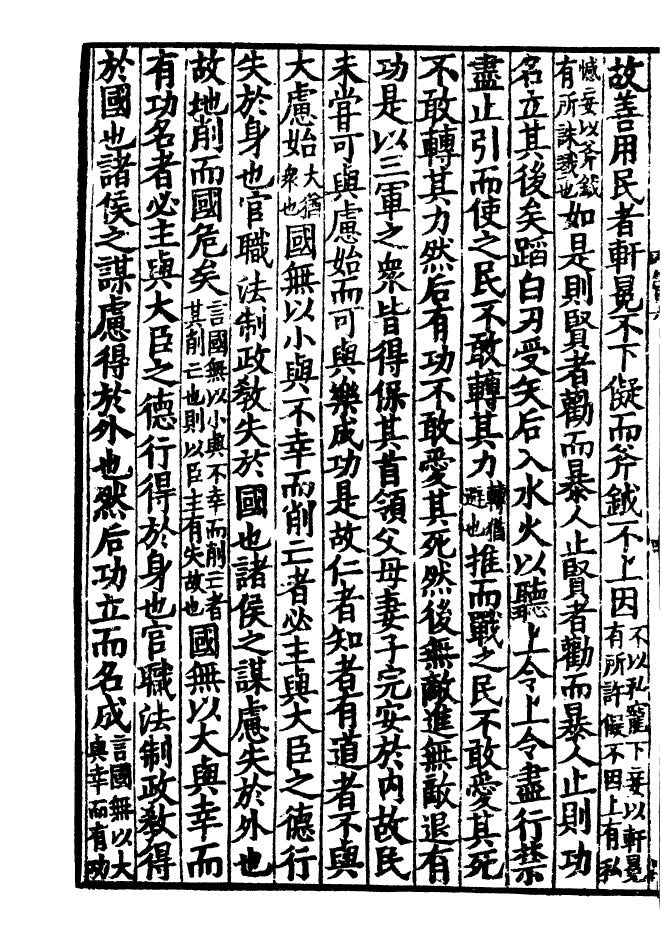 故善用民者軒冕不下儗而斧鉞不上因不以私寵下妄以軒冕有所許儗不因上有私
憾妄以斧鉞有所誅戮也如是則賢者勸而暴人止賢者勸而暴人止則功
名立其後矣蹈白刃受矢后入水火以聽上令上令盡行禁
盡止引而使之民不敢轉其力轉猶避也推而戰之民不敢愛其死
不敢轉其力然后有功不敢愛其死然後無敵進無敵退有
功是以三軍之衆皆得保其首領父母妻子完安於內故民
未甞可與慮始而可與樂成功是故仁者知者有道者不與
大慮始大猶衆也國無以小與不幸而削亡者必主與大臣之德行
失於身也官職法制政教失於國也諸侯之謀慮失於外也
故地削而國危矣言國無以小與不幸而削亡者其削亡也則以臣主有失故也國無以大與幸而
有功名者必主與大臣之德行得於身也官職法制政教得
於國也諸侯之謀慮得於外也然后功立而名成言國無以大與幸而有功